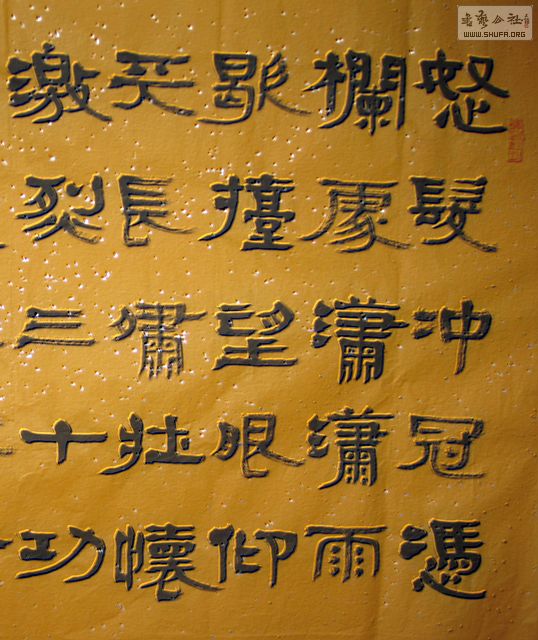 怒髮冲冠憑
欄處瀟瀟雨
歇擡望眼仰
天長嘯壯懷
激烈三十功
書藝公社
WWW.SHUFA.ORG